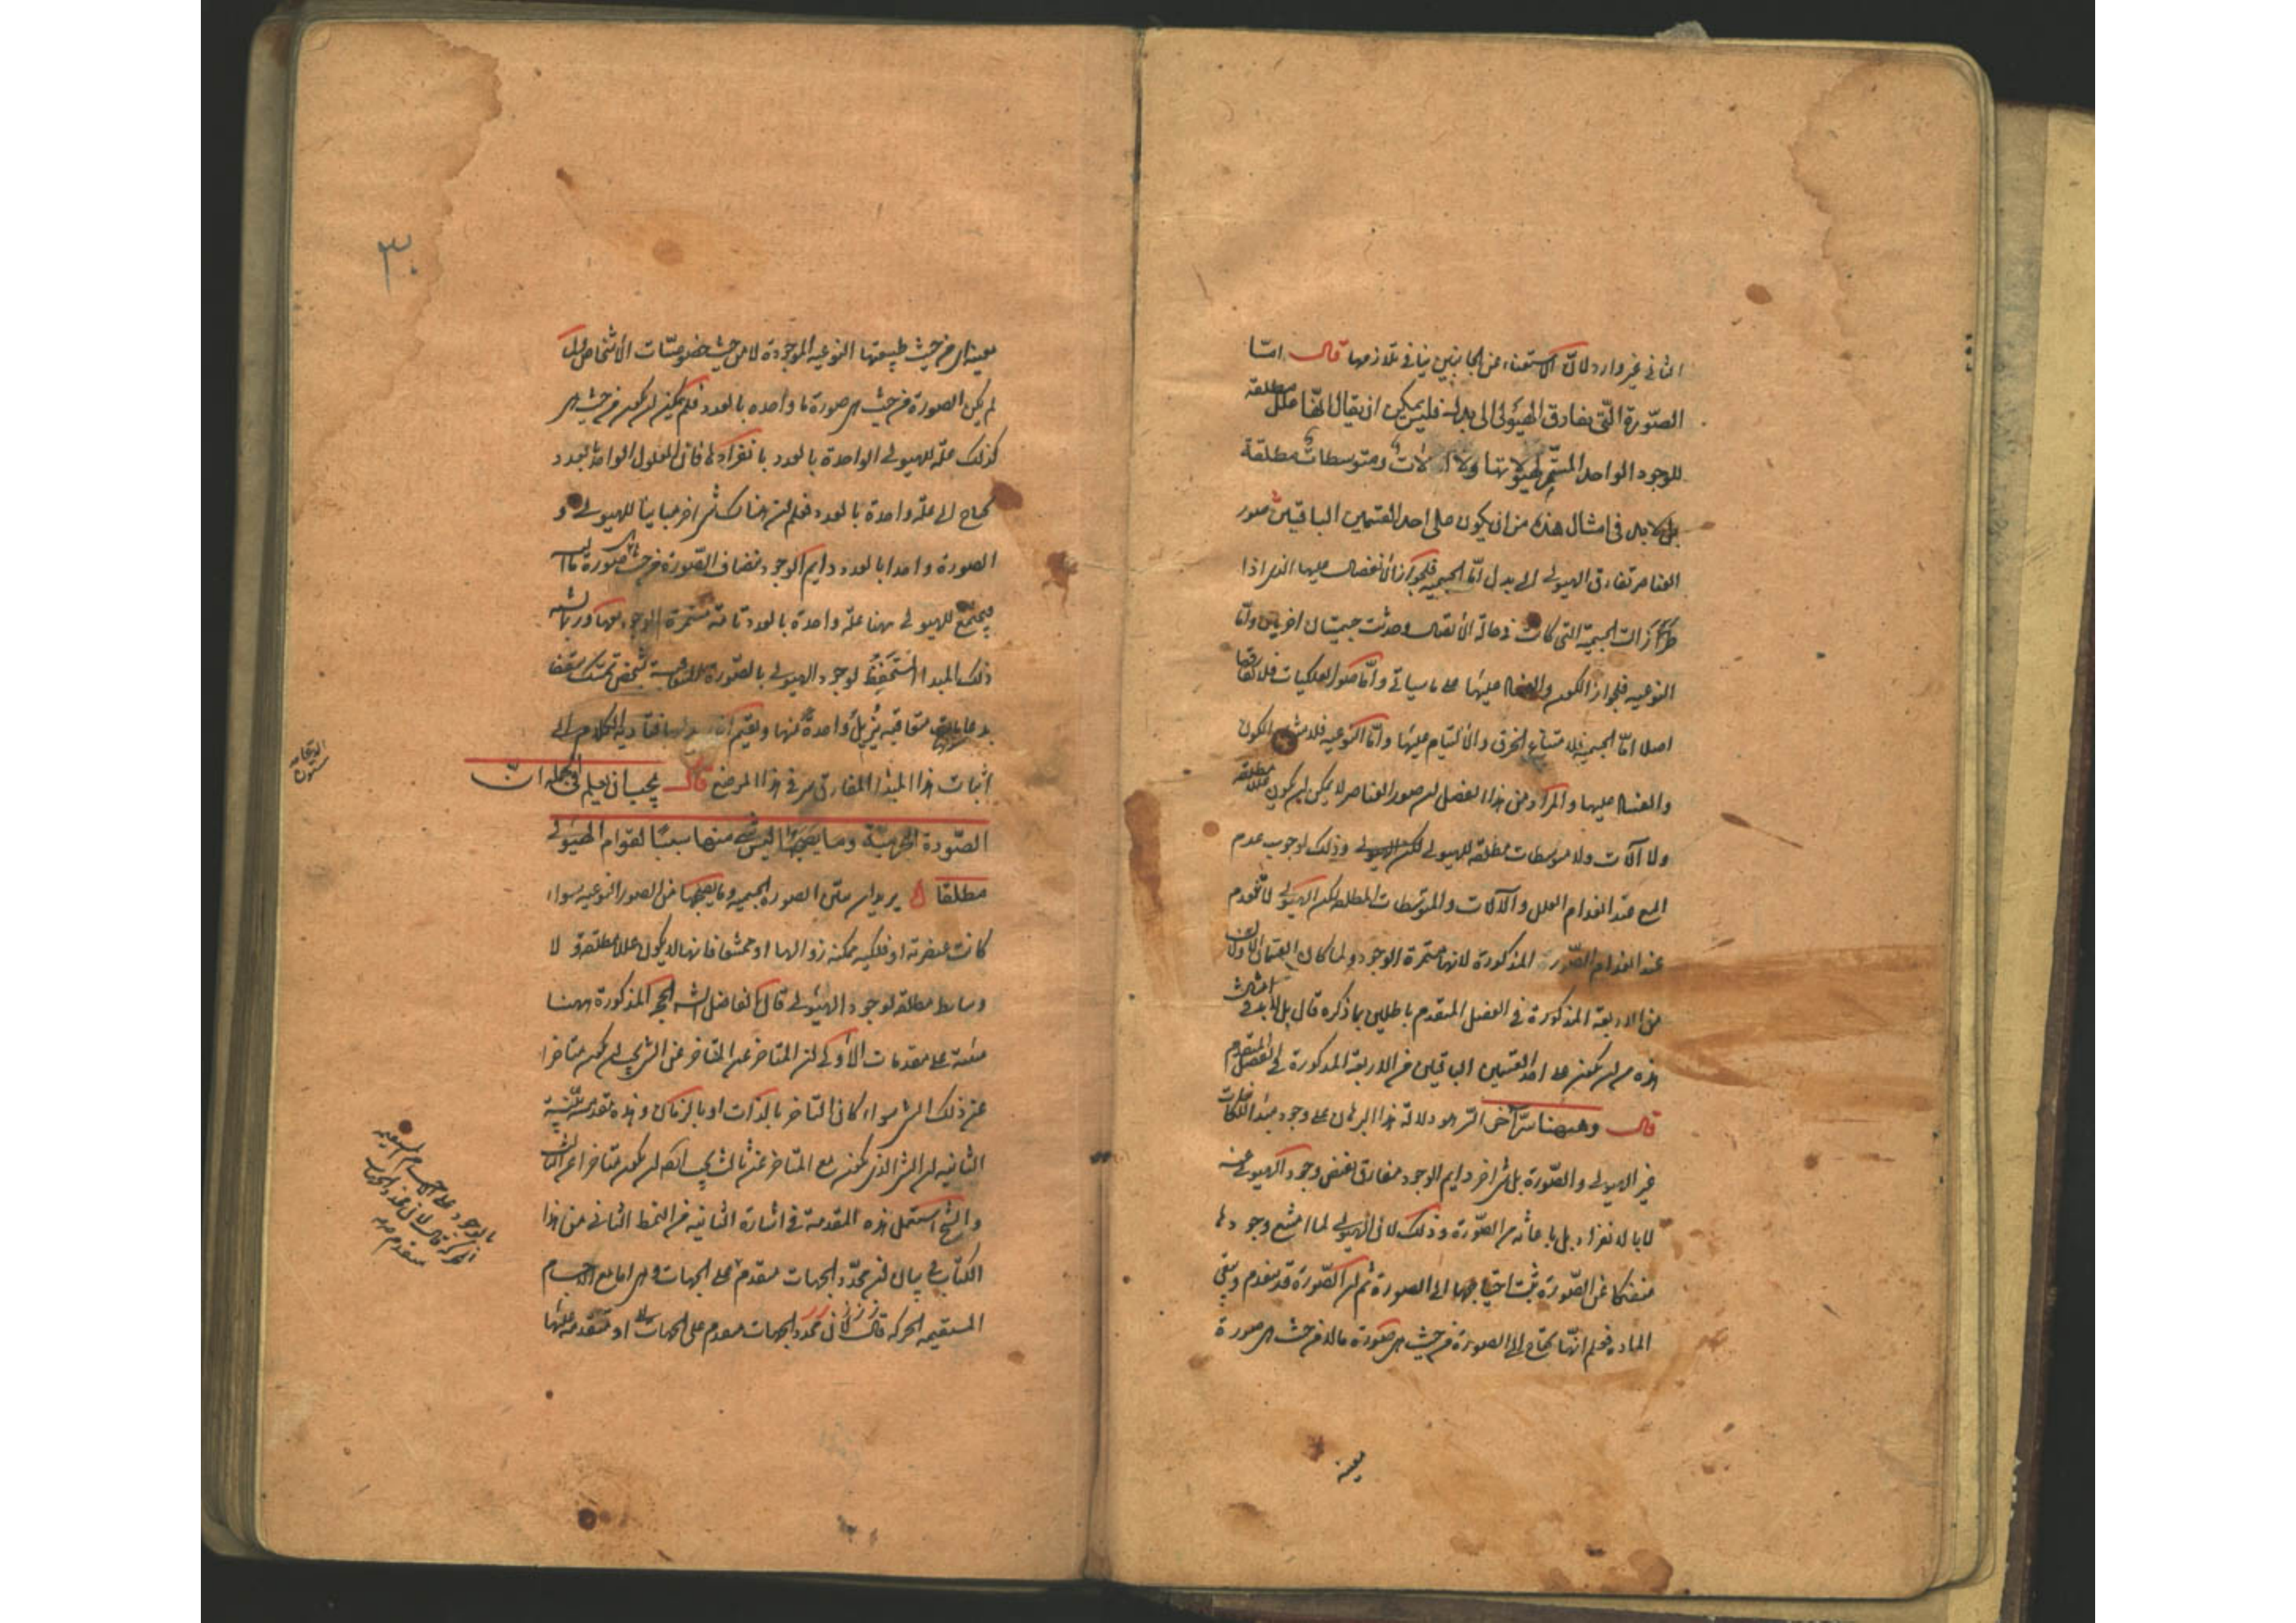 الثانی غیر وارد لان الاستغناء عن الجانبین ینافی تلازمهما قال اما
الصورة التی تفارق الهیولی الی بدل فلیس یمکن ان یقال انها علل مطلقة
للوجود الواحد المستمر لهیولاتها ولا آلات ومتوسطات مطلقة
بل لابد فی امثال هذه من ان یکون علی احد القسمین الباقیین صور
العناصر تفارق الهیولی الی بدل اما الجسمیة فلجواز الانفصال علیها الذی اذا
طرأ زالت الجسمیة التی کانت فی حالة الاتصال وحدثت جسمیتان اخریان واما
النوعیة فلجواز الکون والفساد علیها علی ما سیاتی واما صور الفلکیات فلا تفارقها
اصلا اما الجسمیة فلامتناع الخرق والالتیام علیها واما النوعیة فلامتناع الکون
والفساد علیها والمراد من هذا الفصل ان صور العناصر لا یمکن ان یکون عللا مطلقة
ولا آلات ولا متوسطات مطلقة للهیولی وذلک لوجوب عدم
الجمیع عند انعدام العلل والآلات والمتوسطات المطلقة لکن الهیولی لا تنعدم
عند انعدام الصورة المذکورة لانها مستمرة الوجود ولما کان القسمان الاولان
من الاربعة المذکورة فی الفصل المتقدم باطلین بما ذکره قال بل لابد فی امثال
هذه من ان یکون علی احد القسمین الباقیین من الاربعة المذکورة فی الفصل المتقدم
قال وههنا سر آخر السر هو دلالة هذا البرهان علی وجود مبدأ للکائنات
غیر الهیولی والصورة بل شئ آخر دایم الوجود مفارق یفیض وجود الهیولی عنه
لا بالانفراد بل باعانة من الصورة وذلک لان الهیولی لما امتنع وجودها
منفکا عن الصورة ثبت احتیاجها الی الصورة ثم ان الصورة قد تنعدم وتبقی
المادة فعلم انها تحتاج الی الصورة من حیث هی صورة ما لا من حیث هی صورة
معینة
۳۰
معینة ای من حیث طبیعتها النوعیة الموجودة لا من حیث خصوصیات الاشخاص
لم یکن الصورة من حیث هی صورة ما واحدة بالعدد فلم یمکن ان یکون من حیث هی
کذلک علة للهیولی الواحدة بالعدد بانفرادها فان المعلول الواحد بالعدد
یحتاج الی علة واحدة بالعدد فعلم ان هناک شئ آخر مباینا للهیولی و
الصورة واحدا بالعدد دایم الوجود تنضاف الصورة من حیث هی صورة ما الیه
فیجتمع للهیولی منهما علة واحدة بالعدد تامة مستمرة الوجود معها وربما یشبه
ذلک المبدأ المستحفظ لوجود الهیولی بالصورة المتعاقبة بشخص یمسک سقفا
بدعامات متعاقبة یزیل واحدة منها ویقیم اخری بدلها فتأدیة الکلام الی
اثبات هذا المبدأ المفارق سر فی هذا الموضع قال یجب ان یعلم فی الجملة ان
الصورة الجرمیة وما یصحبها لیس شئ منها سببا لقوام الهیولی
مطلقا یرید ان یبین ان الصورة الجسمیة وما یصحبها من الصور النوعیة سواء
کانت عنصریة او فلکیة ممکنة زوالها او ممتنعا فانها لا یکون عللا مطلقة ولا
وسایط مطلقة لوجود الهیولی قال الفاضل الشه الحجة المذکورة ههنا
مبنیة علی مقدمات الاولی ان المتاخر عن المتاخر عن الشئ یجب ان یکون متاخرا
عن ذلک الشئ سواء کان التاخر بالذات او بالزمان وهذه مقدمة بینة
الثانیة ان الشئ الذی یکون مع المتاخر عن ثالث یجب ایضا ان یکون متاخرا عن الثالث
والشیخ استعمل هذه المقدمة فی اشارة الثانیة من النمط الثانی من هذا
الکتاب فی بیان ان محدد الجهات متقدم علی الجهات وهی اما مع الاجسام
المستقیمة الحرکة قال لان محدد الجهات متقدم علی الجهات او متقدمة علیها
الدعامة
ستون